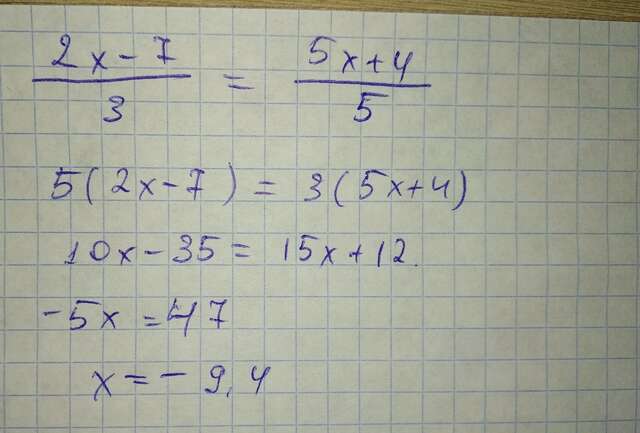 2x-7 / 3 = 5x+4 / 5
5(2x-7) = 3(5x+4)
10x-35 = 15x+12.
-5x = 47
x = -9,4